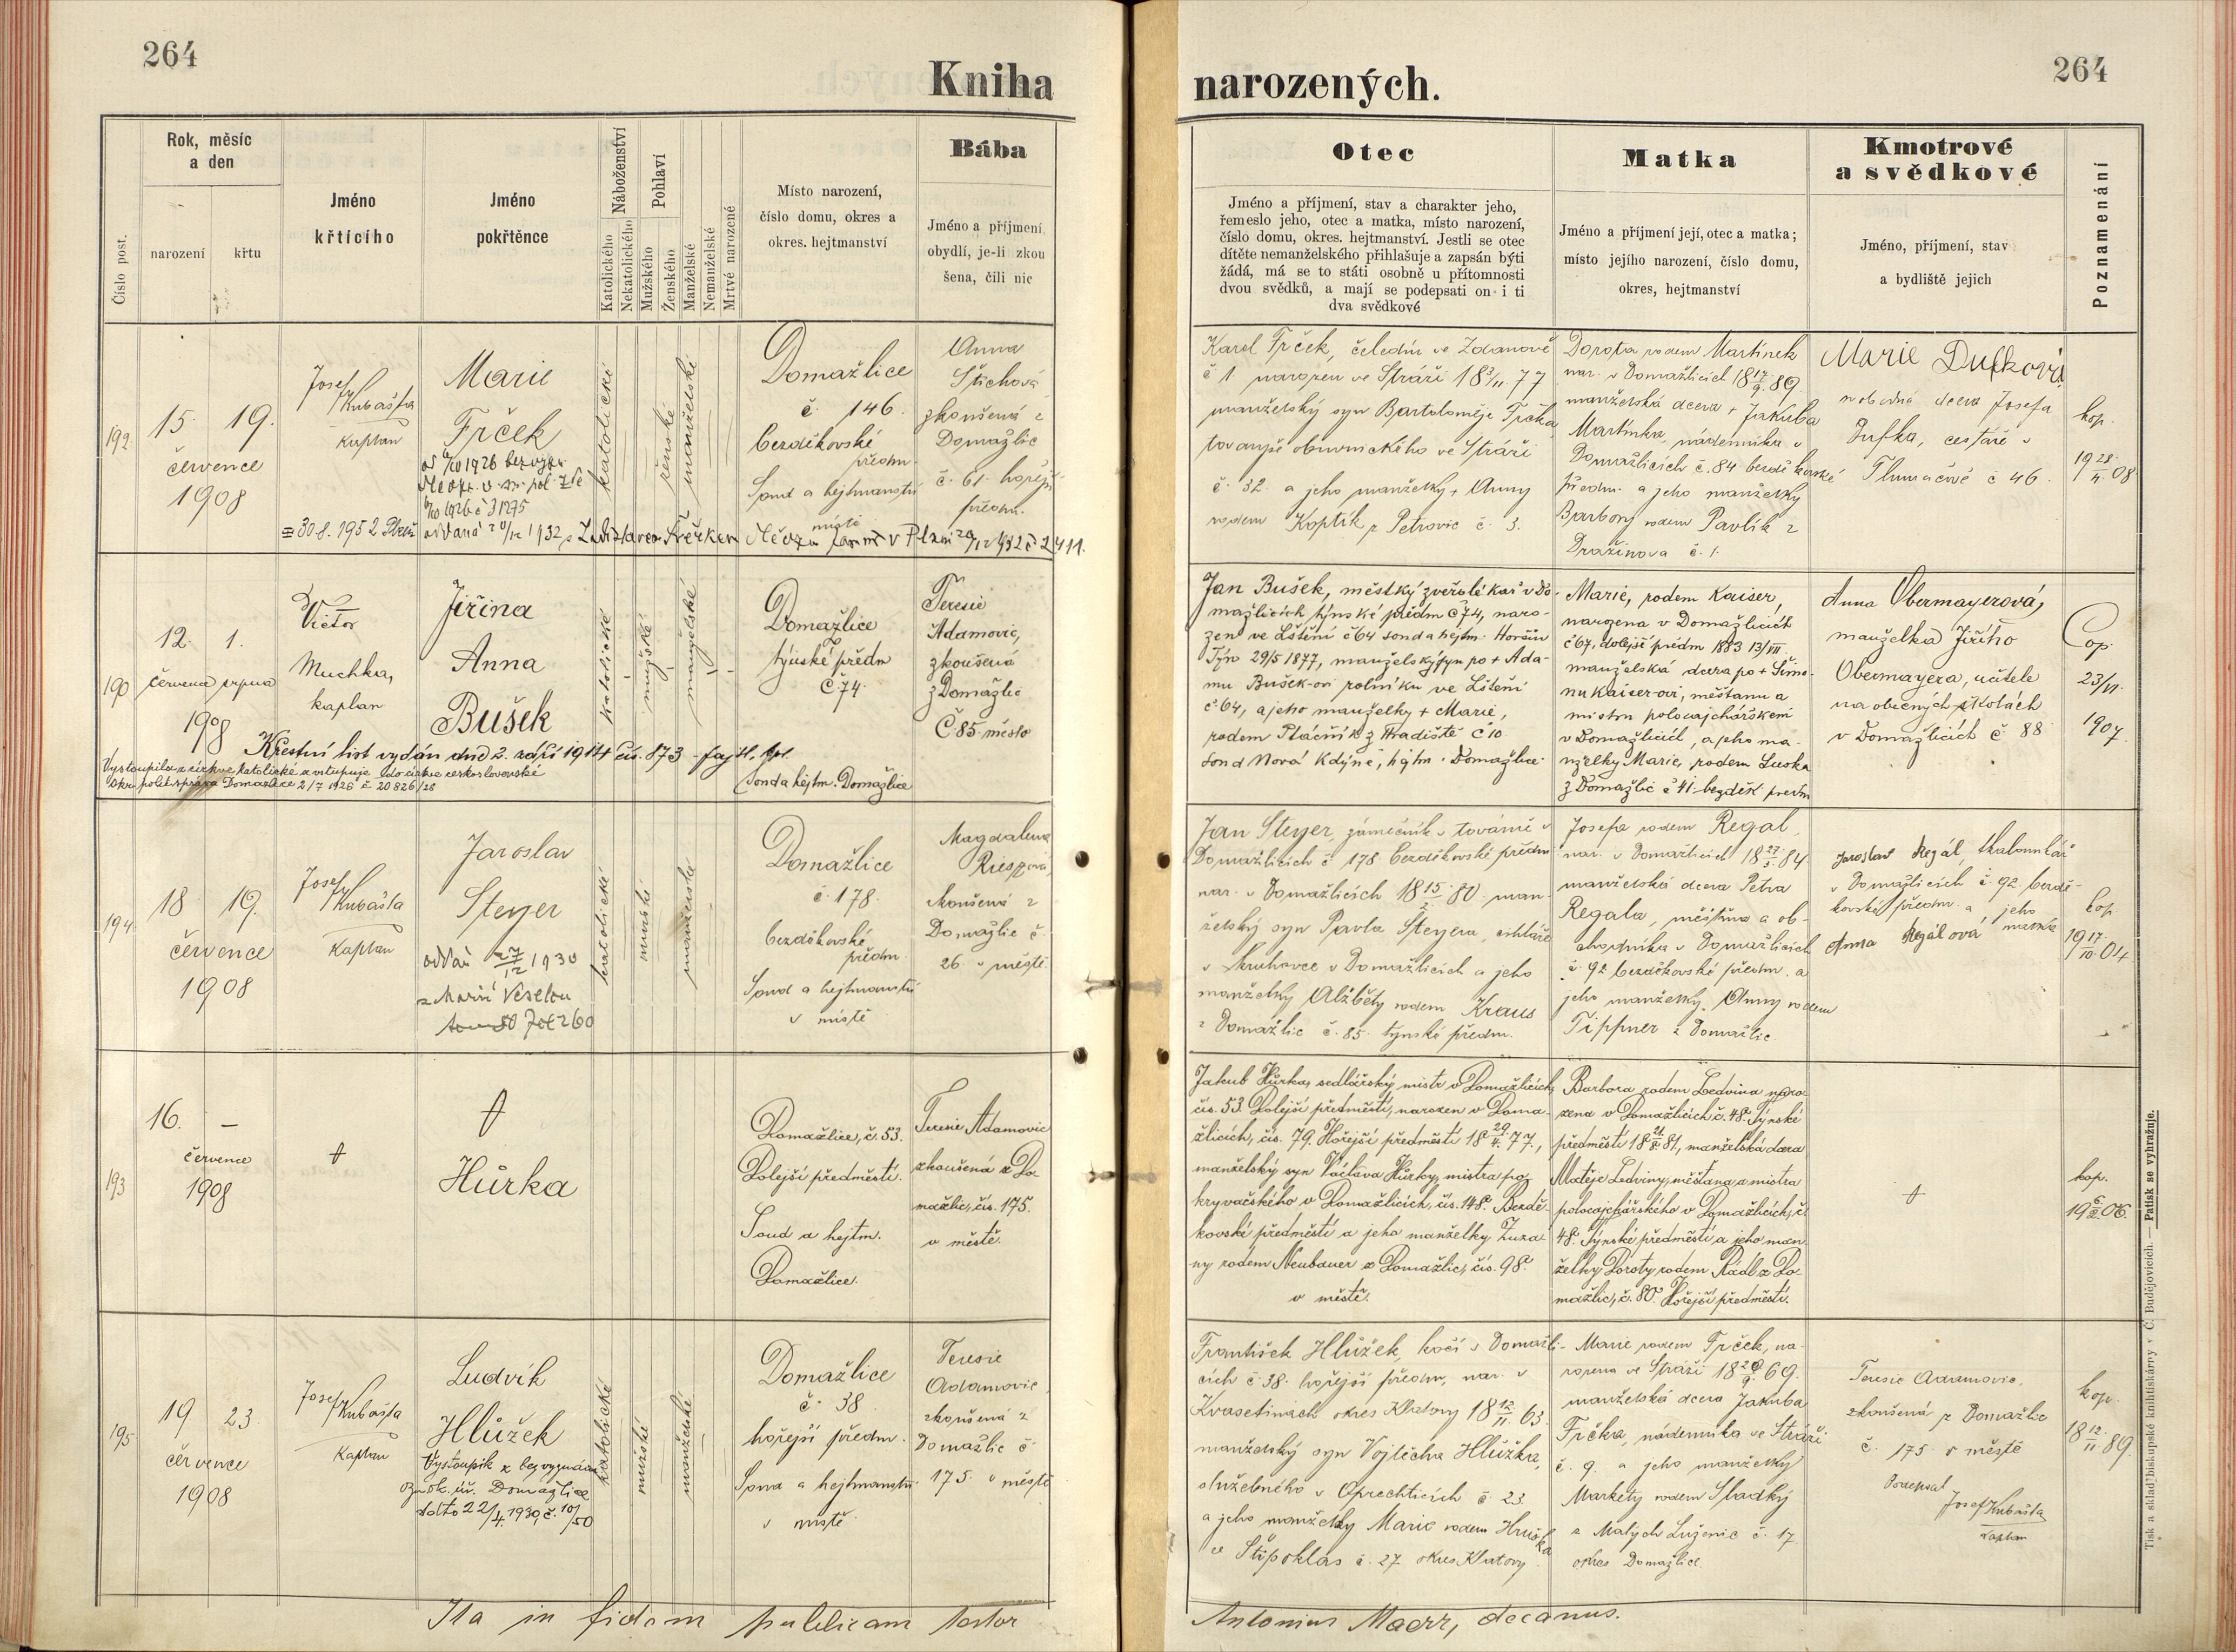 264
Kniha
narozených.
264
Číslo post.
Rok, měsíc
a den
narození
křtu
Jméno
křtícího
Jméno
pokřtěnce
Náboženství
Katolického
Nekatolického
Pohlaví
Mužského
Ženského
Manželské
Nemanželské
Mrtvé narozené
Místo narození,
číslo domu, okres a
okres. hejtmanství
Bába
Jméno a příjmení
obydlí, je-li zkou
šena, čili nic
Otec
Jméno a příjmení, stav a charakter jeho,
řemeslo jeho, otec a matka, místo narození,
číslo domu, okres. hejtmanství. Jestli se otec
dítěte nemanželského přihlašuje a zapsán býti
žádá, má se to státi osobně u přítomnosti
dvou svědků, a mají se podepsati on i ti
dva svědkové
Matka
Jméno a příjmení její, otec a matka;
místo jejího narození, číslo domu,
okres, hejtmanství
Kmotrové
a svědkové
Jméno, příjmení, stav
a bydliště jejich
Poznamenání
192
15. 19.
července
1908
Josef Kubašta
kaplan
Marie
Frček
katolické
ženské
manželské
Domažlice
č. 146.
bezděkovské
předm.
Soud a hejtmanství
místě
Anna
Štichová
zkoušená z
Domažlic
č. 61. hořejší
předm.
30.8.1952 Plzeň
Karel Frček, čeledín ve Zdanově
č 1. narozen ve Stráži 18 3/11 77
manželský syn Bartoloměje Frčka,
tovaryše obuvnického ve Stráži
č. 32. a jeho manželky + Anny
rodem Koptík z Petrovic č. 3.
Dorota rodem Martínek
nar. v Domažlicích 18 17/9 89
manželská dcera + Jakuba
Martínka, nádenníka v
Domažlicích č. 84 bezděkovské
předm. a jeho manželky
Barbory rodem Pavlík z
Dražinova č. 1.
Marie Dufková
svobodná dcera Josefa
Dufka, cestáře v
Tlumačově č 46.
kop.
19 28/4 08
190
12. 1.
července srpna
1908
Victor
Muchka,
kaplan
Jiřina
Anna
Bušek
katolické
mužské
manželské
Domažlice
týnské předm
Č 74.
Soud a hejtm. Domažlice
Teresie
Adamovic,
zkoušená
z Domažlic
Č 85 město
Křestní list vydán dne 2. září 1914 čís. 873
Vystoupila z církve katolické a vstupuje do církve československé
Okr. polit. správa Domažlice 2/7 1926 č 20826/26
Jan Bušek, městský zvěrolékař v Do-
mažlicích týnské předm č 74, naro-
zen ve Lštění č 64 soud a hejtm. Horšův
Týn 29/5 1877, manželský syn po + Ada-
mu Bušek-ovi rolníku ve Lštění
č 64, a jeho manželky + Marie,
rodem Ptáčník z Hradiště č 10
soud Nová Kdyně, hejtm. Domažlice.
Marie, rodem Kaiser,
narozena v Domažlicích
č 67, dolejší předm 1883 13/VII
manželská dcera po + Šimo-
nu Kaiser-ovi, měšťanu a
mistru polocajchářském
v Domažlicích, a jeho ma-
nželky Marie, rodem Luska
z Domažlic č 41. bezděk. předm
Anna Obermayerová,
manželka Jiřího
Obermayera, učitele
na obecných školách
v Domažlicích č 88
Cop.
23/VI.
1907.
194
18. 19.
července
1908
Josef Kubašta
Kaplan
Jaroslav
Steyer
oddán 27/12 1930
s Marií Veselou
katolické
mužské
manželské
Domažlice
č. 178.
bezděkovské
předm
Soud a hejtmanství
v místě
Magdalena
zkoušená z
Domažlic č.
26. v městě.
Jan Steyer, zámečník v továrně v
Domažlicích č 178 bezděkovské předm
nar. v Domažlicích 18 15/2 80 man-
želský syn Pavla Steyera, cihláře
v Domažlicích a jeho
manželky Alžběty rodem Kraus
z Domažlic č. 85. týnské předm.
Josefa rodem Regal,
nar. v Domažlicích 18 27/3 84.
manželská dcera Petra
Regala, měšťana a ob-
chodníka v Domažlicích
č. 92 bezděkovské předm. a
jeho manželky Anny rodem
Tippner z Domažlic.
Jaroslav Regál,
v Domažlicích č. 92. bezdě-
kovské předm. a jeho
Anna Regálová manželka
kop.
19 17/10 04
193
16. –
července
1908
†
†
Hůrka
Domažlice, č. 53.
Dolejší předměstí.
Soud a hejtm.
Domažlice.
Terezie Adamovic
zkoušená z Do-
mažlic, čís. 175.
v městě.
Jakub Hůrka, sedlářský mistr v Domažlicích,
čís. 53. Dolejší předměstí, narozen v Doma-
žlicích, čís. 79. Hořejší předměstí 18 29/4 77.,
manželský syn Václava Hůrky, mistra po-
kryvačského v Domažlicích, čís. 148. Bezdě-
kovské předměstí a jeho manželky Zuza-
ny rodem Neubauer z Domažlic, čís. 98.
v městě.
Barbora rodem Ledvina naro-
zena v Domažlicích č. 48. Týnské
předměstí 18 21/8 81, manželská dcera
Matěje Ledviny, měšťana a mistra
polocajchářského v Domažlicích, č.
48. Týnské předměstí a jeho man-
želky Doroty, rodem Rádl z Do-
mažlic, č. 80. Hořejší předměstí.
†
kop.
19 6/2 06.
195
19 23.
července
1908
Josef Kubašta
Kaplan
Ludvík
Hlůžek
Vystoupil z bez vyznání
Ozn. ok. úř. Domažlice
dato 22/4. 1930, č. 10/50
katolické
mužské
manželské
Domažlice
č. 38
hořejší předm.
Soud a hejtmanství
v místě
Terezie
Adamovic
zkoušená z
Domažlic č.
175. v městě
František Hlůžek, kočí v Domažli-
cích č. 38. hořejší předm, nar. v
Kvasetinách okres Klatovy 18 12/11 63.
manželský syn Vojtěcha Hlůžka,
služebného v Oprechticích č. 23
a jeho manželky Marie rodem Hruška
ze Štipoklas č. 27 okres Klatovy
Marie rodem Frček, na-
rozena ve Stráži 18 29/9 69.
manželská dcera Jakuba
Frčka, nádenníka ve Stráži
č. 9. a jeho manželky
Markéty rodem Sladký
z Malých Luženic č. 17
okres Domažlice.
Terezie Adamovic,
zkoušená z Domažlic
č. 175 v městě
Podepsal
Josef Kubašta
kaplan
kop.
18 12/11 89.
Ita in fidem publicam testor
Antonius Maerz, decanus.
Tisk a sklad biskupské knihtiskárny v Č. Budějovicích. — Patisk se vyhražuje.